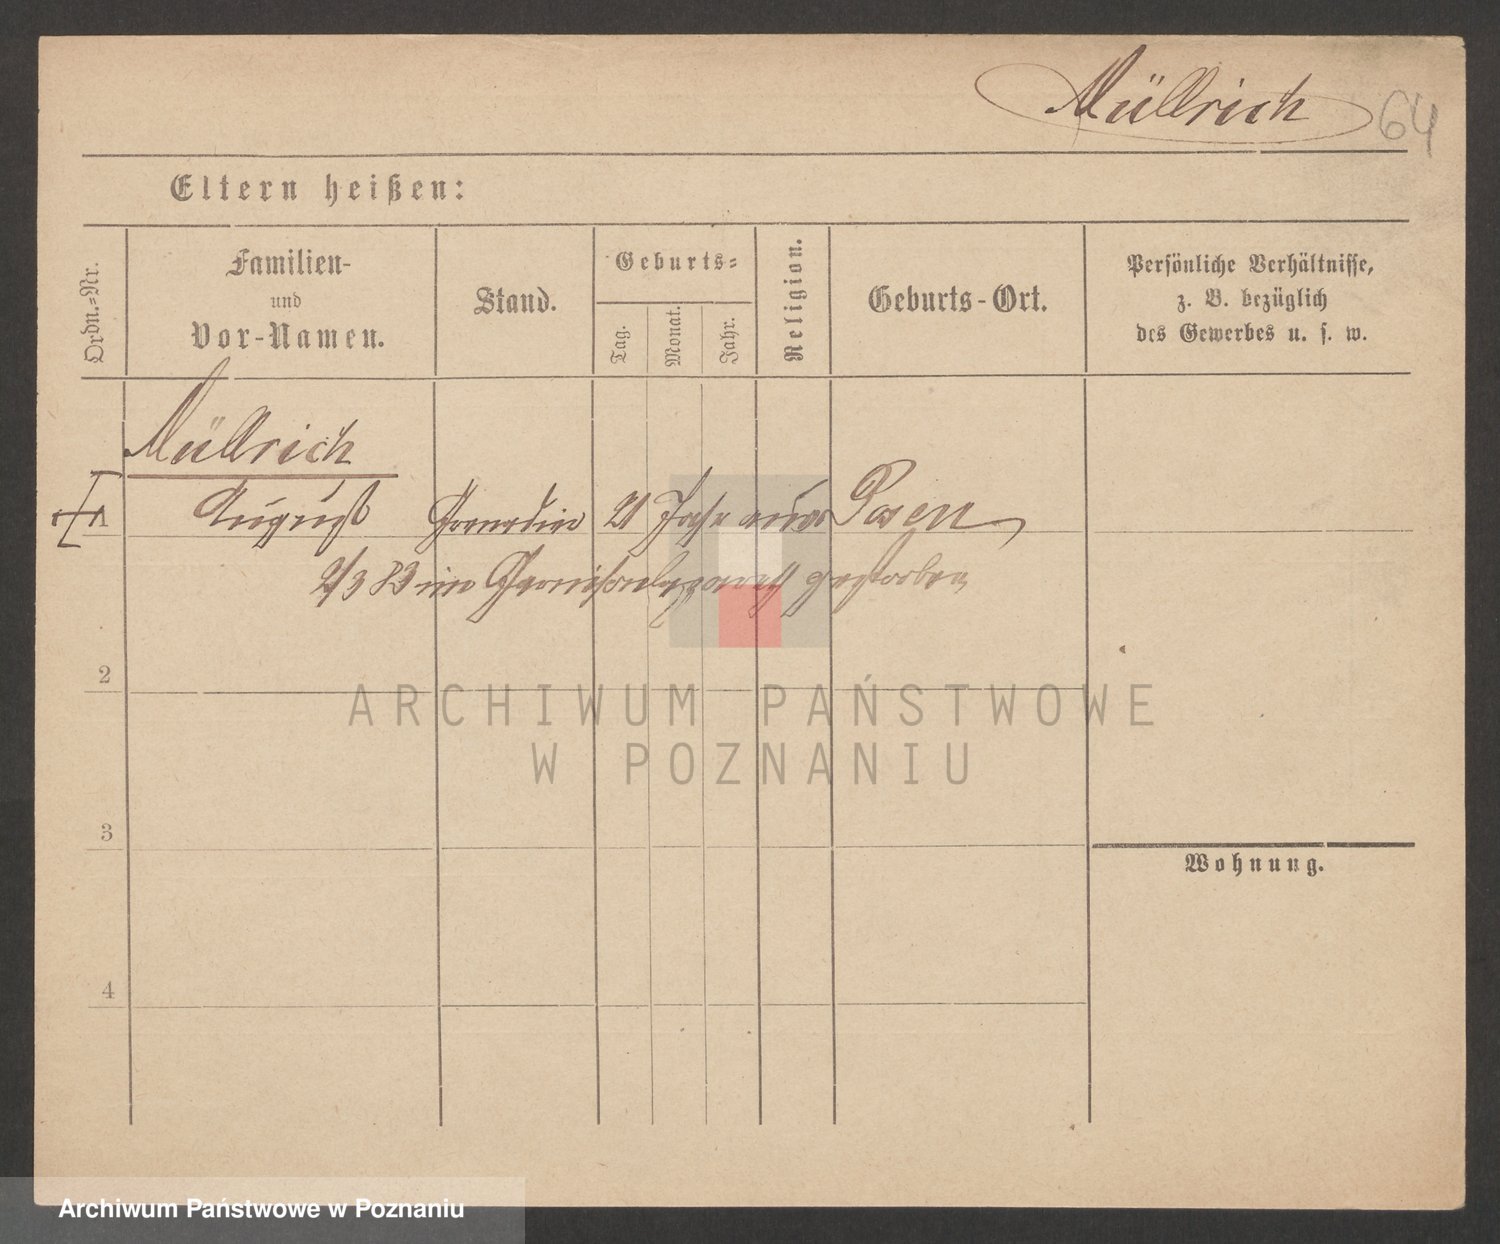 Müllrich
64
Eltern heißen:
Ordn.-Nr.
Familien-
und
Vor-Namen.
Stand.
Geburts-
Tag.
Monat.
Jahr.
Religion.
Geburts-Ort.
Persönliche Verhältnisse,
z. B. bezüglich
des Gewerbes u. s. w.
Müllrich
1 August Grenadier 21 Jahr aus Posen
2/3 83 im Garnisonlazareth gestorben
2
ARCHIWUM PAŃSTWOWE
W POZNANIU
3
Wohnung.
4
Archiwum Państwowe w Poznaniu